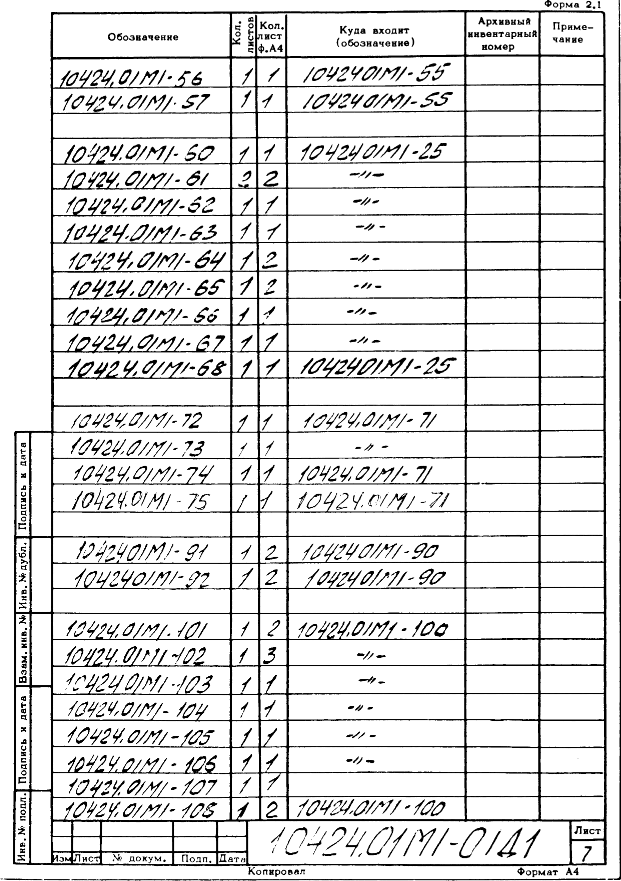 Форма 2.1
Обозначение | Кол. листов | Кол. лист ф.А4 | Куда входит (обозначение) | Архивный инвентарный номер | Приме-чание
10424.01М1-56 1 1 1042401М1-55
10424.01М1-57 1 1 1042401М1-55
10424.01М1-60 1 1 1042401М1-25
10424.01М1-61 2 2 -"-
10424.01М1-62 1 1 -"-
10424.01М1-63 1 1 -"-
10424.01М1-64 1 2 -"-
10424.01М1-65 1 2 -"-
10424.01М1-66 1 1 -"-
10424.01М1-67 1 1 -"-
10424.01М1-68 1 1 1042401М1-25
10424.01М1-72 1 1 10424.01М1-71
10424.01М1-73 1 1 -"-
10424.01М1-74 1 1 10424.01М1-71
10424.01М1-75 1 1 10424.01М1-71
1042401М1-91 1 2 1042401М1-90
1042401М1-92 1 2 1042401М1-90
10424.01М1-101 1 2 10424.01М1-100
10424.01М1-102 1 3 -"-
1042401М1-103 1 1 -"-
10424.01М1-104 1 1 -"-
10424.01М1-105 1 1 -"-
10424.01М1-106 1 1 -"-
10424.01М1-107 1 1
10424.01М1-108 1 2 10424.01М1-100
Подпись и дата
Инв. № дубл.
Взам. инв. №
Подпись и дата
Инв. № подл.
10424.01М1-01Д1
Лист
7
Изм Лист № докум. Подп. Дата
Копировал Формат А4